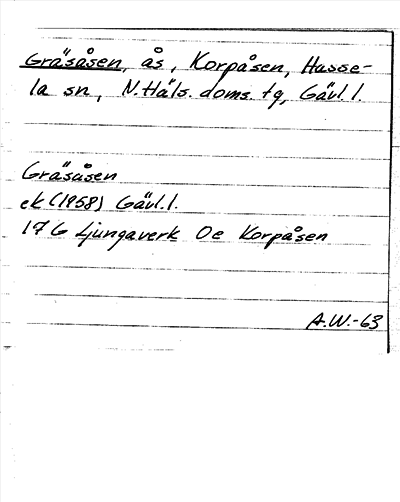 Gräsåsen, ås, Korpåsen, Hasse-
la sn, N.Häls. doms. tg, Gävl.l.
Gräsåsen
ek (1958) Gävl.l.
17 G Ljungaverk 0e Korpåsen
A.W.-63